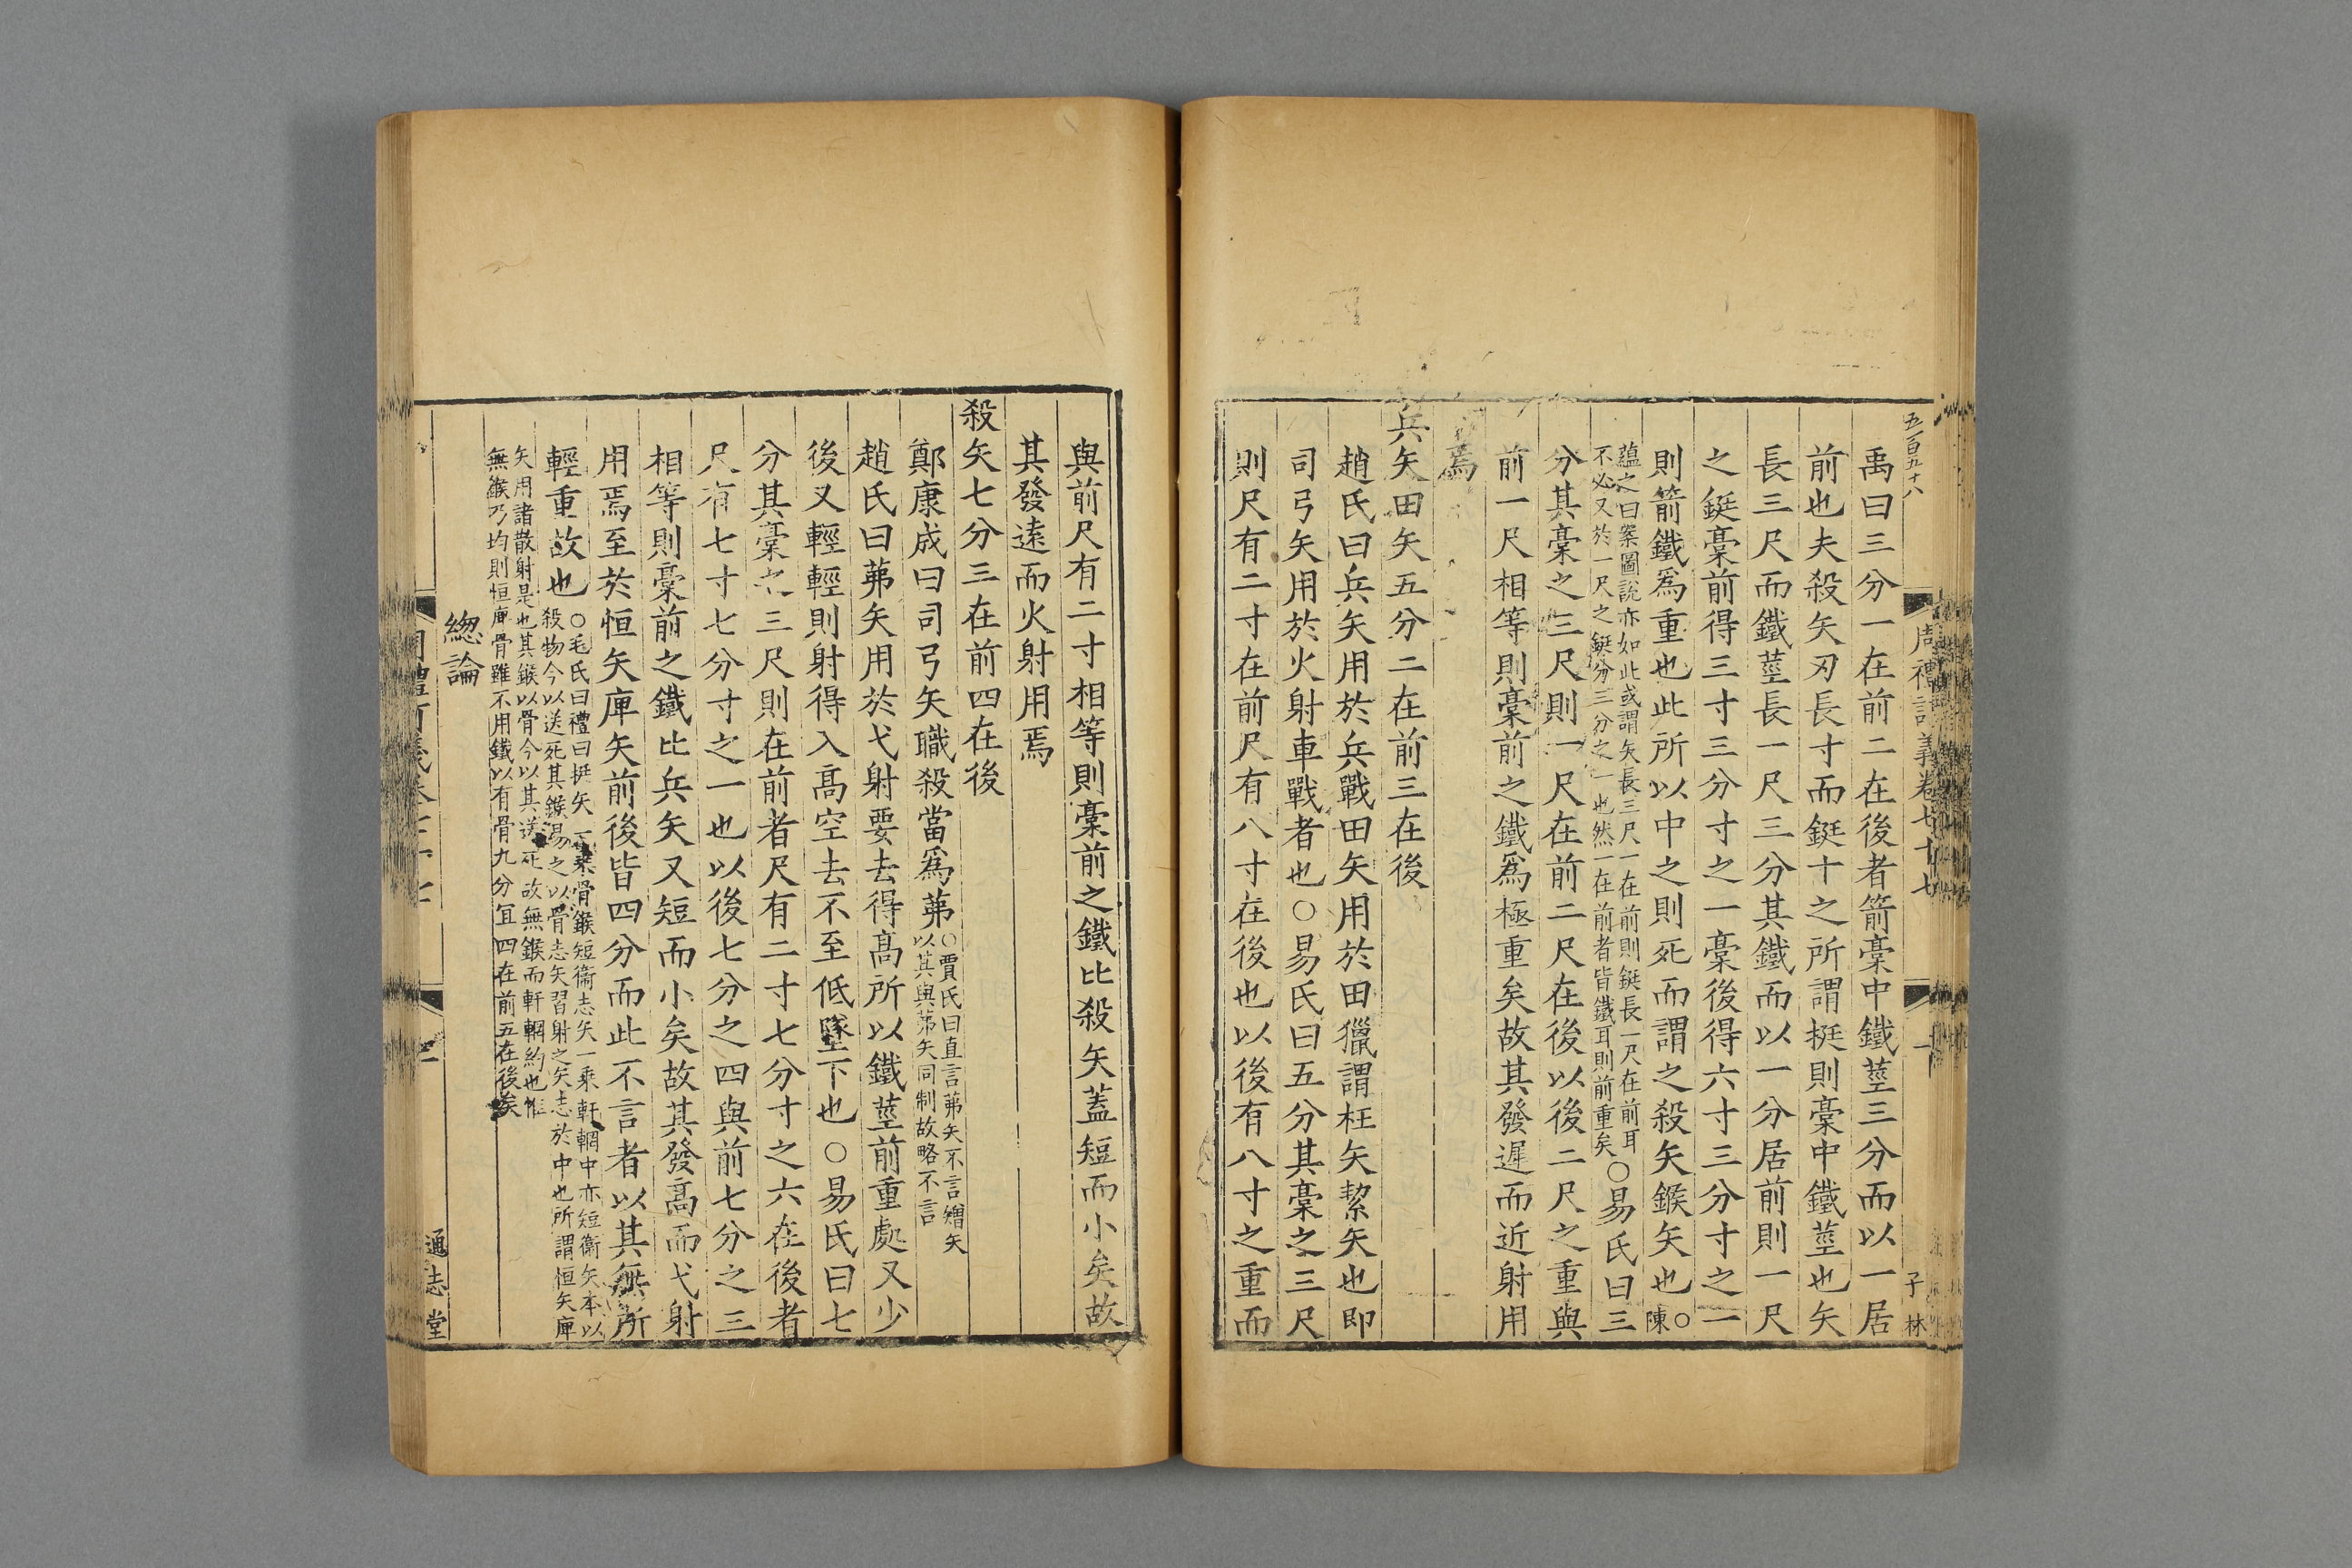 五百九十八
周禮訂義卷七十七
一
子林
禹曰三分一在前二在後者箭槀中鐵莖三分而以一居
前也夫殺矢刃長寸而鋌十之所謂挺則槀中鐵莖也矢
長三尺而鐵莖長一尺三分其鐵而以一分居前則一尺
之鋌槀前得三寸三分寸之一槀後得六寸三分寸之二
則箭鐵爲重也此所以中之則死而謂之殺矢鍭矢也○陳
蘊之曰案圖說亦如此或謂矢長三尺一在前則鋌長一尺在前耳
不必又於一尺之鋌分三分之一也然一在前者皆鐵耳則前重矣○易氏曰三
分其槀之三尺則一尺在前二尺在後以後二尺之重與
前一尺相等則槀前之鐵爲極重矣故其發遲而近射用
焉
兵矢田矢五分二在前三在後
趙氏曰兵矢用於兵戰田矢用於田獵謂枉矢絜矢也即
司弓矢用於火射車戰者也○易氏曰五分其槀之三尺
則尺有二寸在前尺有八寸在後也以後有八寸之重而
與前尺有二寸相等則槀前之鐵比殺矢蓋短而小矣故
其發遠而火射用焉
殺矢七分三在前四在後
鄭康成曰司弓矢職殺當爲茀○賈氏曰直言茀矢不言矰矢
以其與茀矢同制故略不言
趙氏曰茀矢用於弋射要去得高所以鐵莖前重處又少
後又輕輕則射得入高空去不至低墜下也○易氏曰七
分其槀之三尺則在前者尺有二寸七分寸之六在後者
尺有七寸七分寸之一也以後七分之四與前七分之三
相等則槀前之鐵比兵矢又短而小矣故其發高而弋射
用焉至於恒矢庳矢前後皆四分而此不言者以其無所
輕重故也○毛氏曰禮曰挺矢一乘骨鍭短衞志矢一乘軒輖中亦短衞矢本以
殺物今以送死其鍭易之以骨志矢習射之矢志於中也所謂恒矢庳
矢用諸散射是也其鍭以骨今以其送死故無鍭而軒輖約也惟
無鍭乃均則恒庳骨雖不用鐵以有骨九分宜四在前五在後矣
總論
通志堂